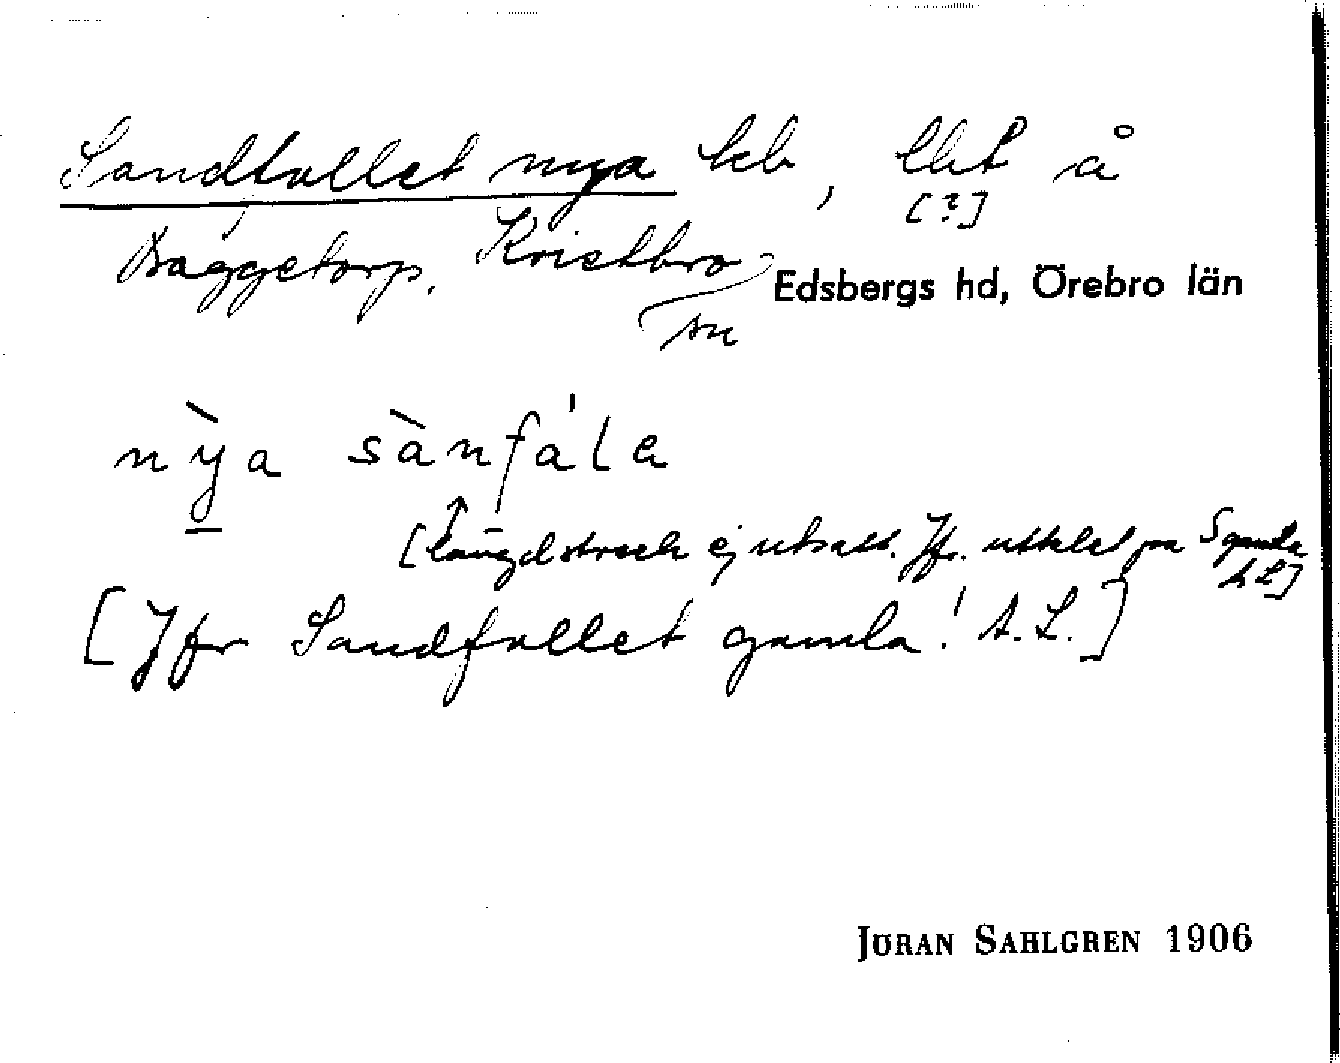 Sandfallet nya lhb, llht å
[?]
Baggetorp, Knistbro
Edsbergs hd, Örebro län
sn
nỳa sànfála
[längdstreck ej utsatt. Jfr. uttalet på S gamla
A L]
[Jfr Sandfallet gamla! A. L.]
JÖRAN SAHLGREN 1906